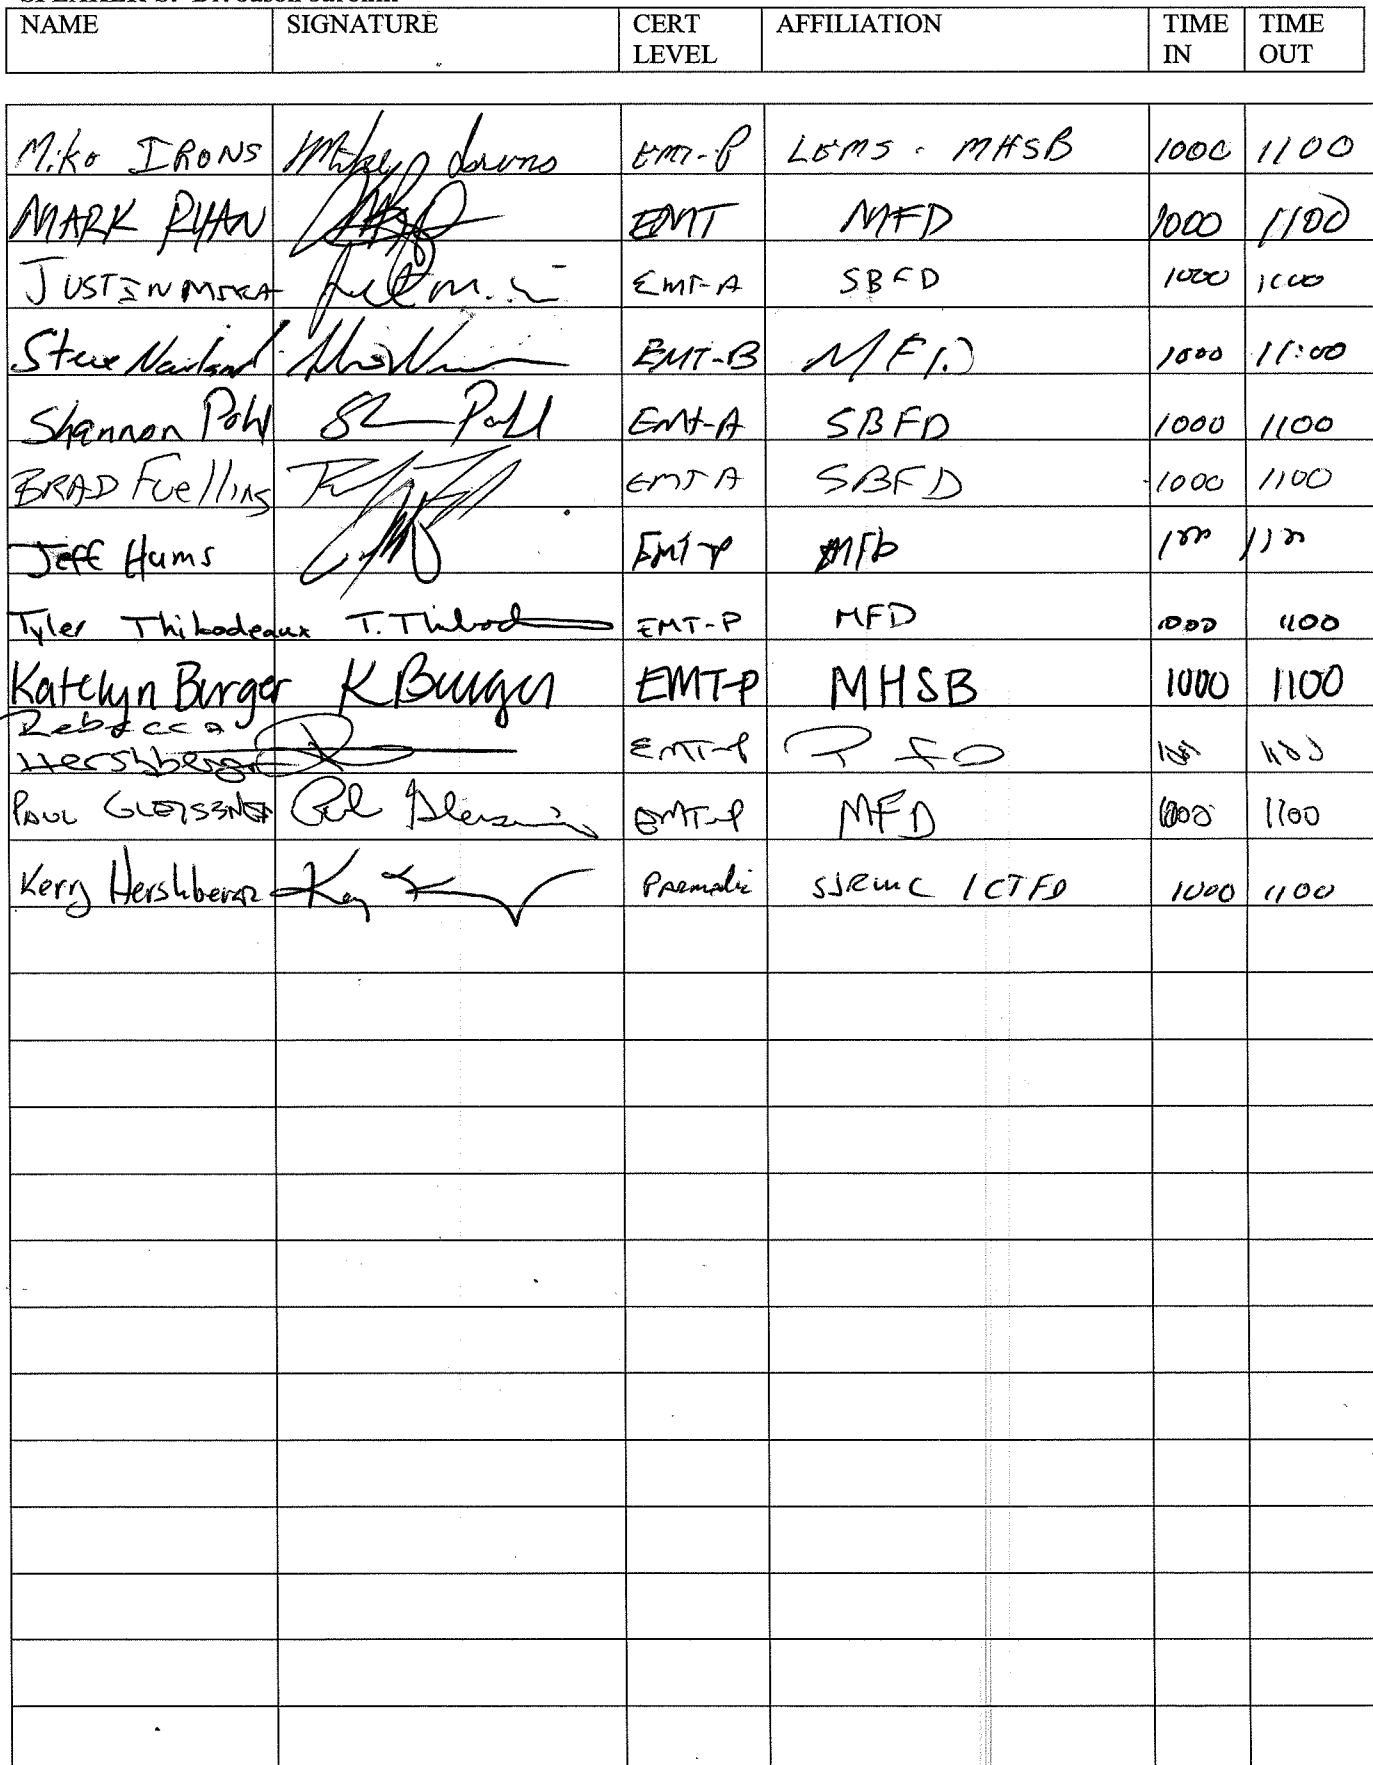 NAME SIGNATURE CERT LEVEL AFFILIATION TIME IN TIME OUT
Mike IRONS Mike Irons EMT-P LEMS - MHSB 1000 1100
MARK RYAN EMT MFD 1000 1100
JUSTIN MIKA EMT-A SBFD 1000 1100
Steve EMT-B MFD 1000 11:00
Shannon Pohl EMT-A SBFD 1000 1100
BRAD Fuelling EMT A SBFD 1000 1100
Jeff Hums EMT-P MFD 1000 1100
Tyler Thibodeaux T. Thibod EMT-P MFD 1000 1100
Katelyn Burger K Burger EMT-P MHSB 1000 1100
Rebecca
Hershberger EMT-P 1000 1100
PAUL GLEISSNER EMT-P MFD 1000 1100
Kerry Hershberger Paramedic SJRMC / CTFD 1000 1100